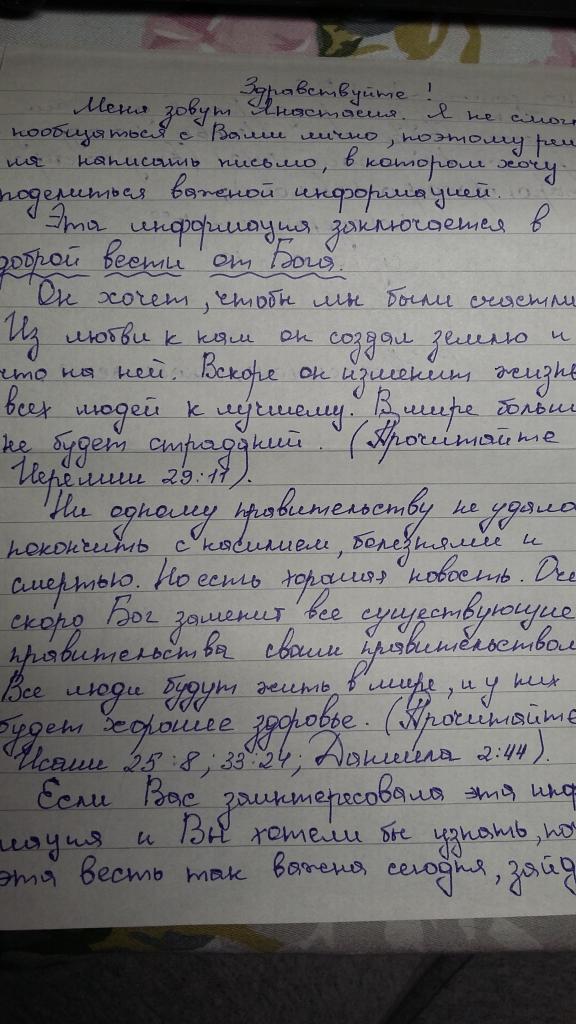 Здравствуйте!
Меня зовут Анастасия. Я не смог
пообщаться с Вами лично, поэтому реш
ла написать письмо, в котором хочу
поделиться важной информацией.
Эта информация заключается в
доброй вести от Бога.
Он хочет, чтобы мы были счастли
Из любви к нам он создал землю и
что на ней. Вскоре он изменит жизнь
всех людей к лучшему. В мире больш
не будет страданий. (Прочитайте
Иеремии 29:11).
Ни одному правительству не удало
покончить с насилием, болезнями и
смертью. Но есть хорошая новость. Оче
скоро Бог заменит все существующие
правительства своим правительством
Все люди будут жить в мире, и у них
будет хорошее здоровье. (Прочитайте
Исаии 25:8; 33:24; Даниила 2:44).
Если Вас заинтересовала эта инф
мация и Вы хотели бы узнать, поч
эта весть так важна сегодня, зайд